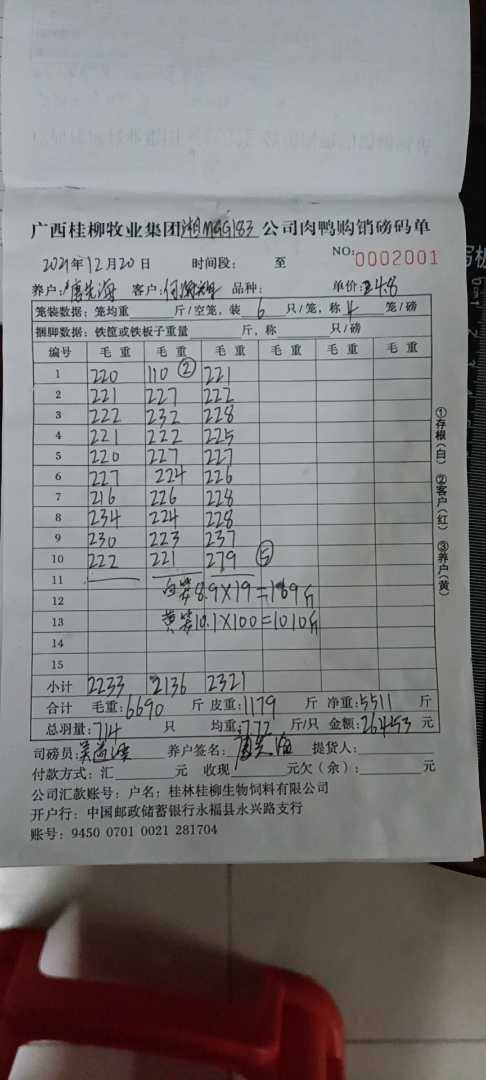 广西桂柳牧业集团湘M9G183公司肉鸭购销磅码单
2021年12月20日 时间段: 至 NO: 0002001
养户: 唐先海 客户: 品种: 单价: 4.8
笼装数据: 笼均重 斤/空笼, 装 6 只/笼, 称 4 笼/磅
捆脚数据: 铁筐或铁板子重量 斤, 称 只/磅
编号 毛重 毛重 毛重 毛重 毛重 毛重
1 220 110② 221
2 221 227 222
3 222 232 228
4 221 222 225
5 220 227 227
6 227 224 226
7 216 226 228
8 234 224 228
9 230 223 237
10 222 221 279⑤
11
12 白笼8.9×19=169斤
13 黄笼10.1×100=1010斤
14
15
小计 2233 2136 2321
合计 毛重: 6690 斤 皮重: 1179 斤 净重: 5511 斤
总羽量: 714 只 均重: 7.72 斤/只 金额: 26453 元
司磅员: 养户签名: 唐先海 提货人:
付款方式: 汇 元 收现 元欠(余): 元
公司汇款账号: 户名: 桂林桂柳生物饲料有限公司
开户行: 中国邮政储蓄银行永福县永兴路支行
账号: 9450 0701 0021 281704
①存根(白) ②客户(红) ③养户(黄)